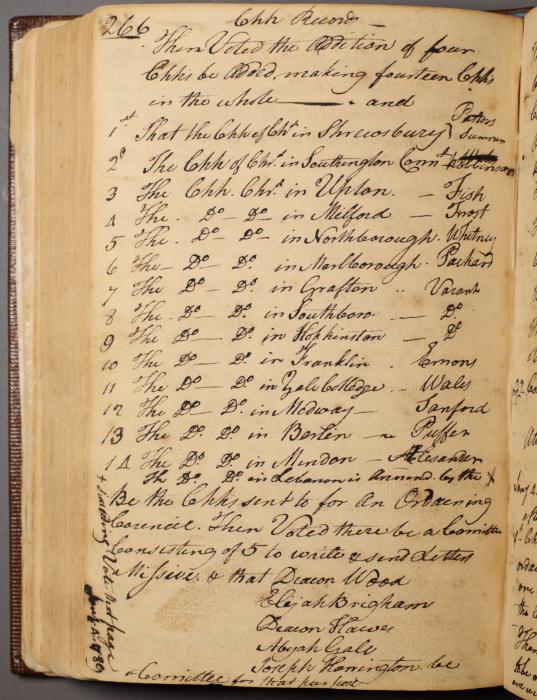 266 Chh Records
Then Voted the Addition of four
Chhs be Added, making fourteen Chhs
in the whole — and
Pastors
1st That the Chh of Cht in Shrewsbury } Sumner
2d The Chh of Chrt in Southington Connt Robinson
3 The Chh. Chrt in Upton. — Fish
4 The. Do — Do in Milford — Frost
5 The. Do — Do in Northborough. Whitney
6 The — Do — Do. in Marlborough. Packard
7 The — Do — Do. in Grafton .. Vacant
8 The. Do — Do. in Southboro — Do.
9 The Do — Do. in Hopkinston — Do
10 The Do — Do. in Franklin . Emons
11 The Do — Do in Yale Colledge. — Wales
12 The Do — Do. in Medway — Sanford
13 The Do. Do. in Berlin — Puffer
14 The Do. Do. in Mendon — Alexander
The Do Do. in Lebanon is Annend by the
Be the Chhs sent to for An Ordaining
Council. Then Voted there be a Committee
Consisting of 5 to write & send Letters
Missive. & that Deacon Wood
Elijah Brigham
Deacon Hawes
Abijah Gale
Joseph Harrington be
a Committee for that purpose
Vote next page
1789